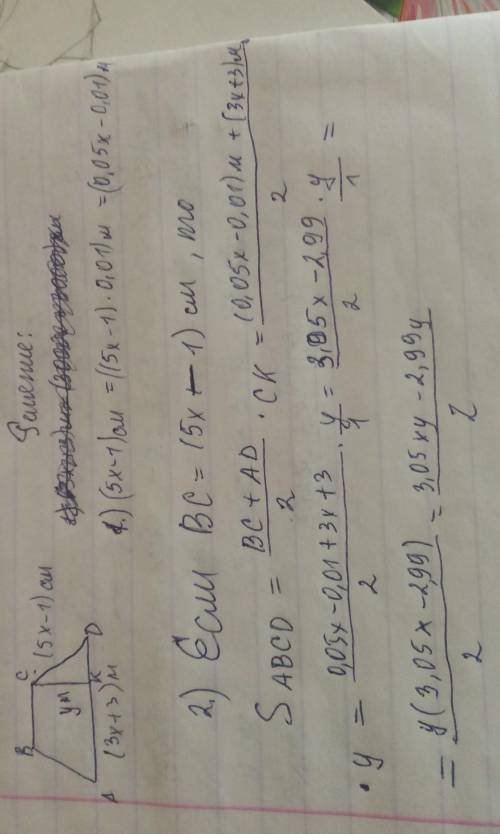 Решение:
B C (5x-1) см
y м
A K D
(3x+3) м
1.) (5x-1) см = ((5x-1)·0,01) м = (0,05x-0,01) м
2) Если BC = (5x-1) см, то
S ABCD = (BC + AD)/2 · CK = ((0,05x-0,01) м + (3x+3) м)/2
· y = (0,05x-0,01+3x+3)/2 · y/1 = (3,05x-2,99)/2 · y/1 =
= y(3,05x-2,99)/2 = (3,05xy-2,99y)/2